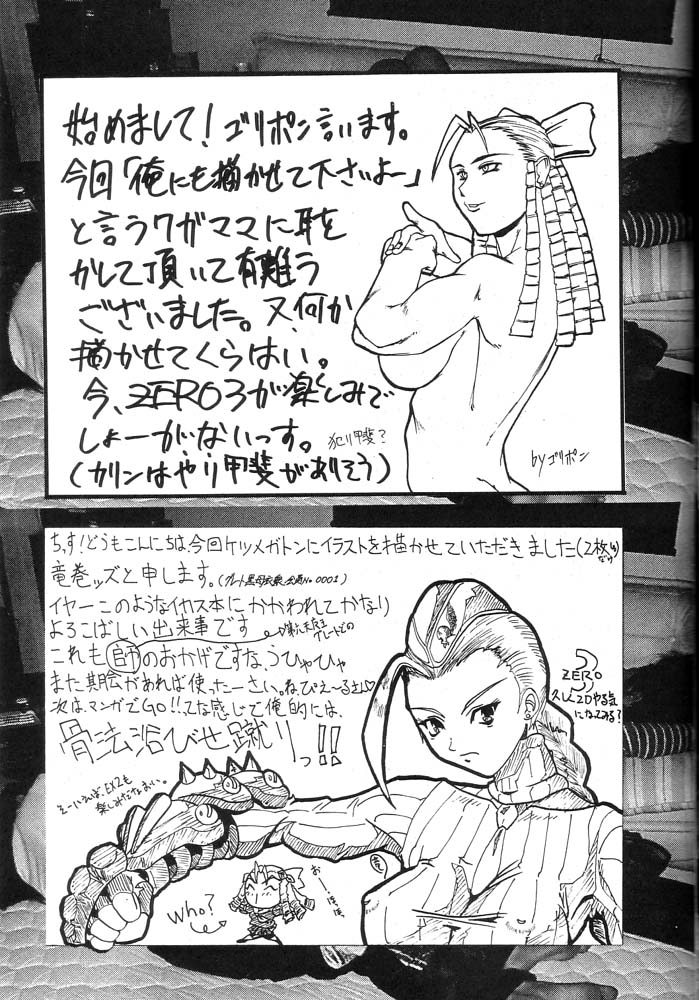 始めまして！ゴリポン言います。
今回「俺にも描かせて下さいよー」
と言うワガママに耳を
かして頂いて有難う
ございました。又、何か
描かせてくらはい。
今、ZERO3が楽しみで
しょーがないっす。
(カリンはやり甲斐がありそう)
犯り甲斐？
byゴリポン
ちっす！どうもこんにちは、今回ケツメガトンにイラストを描かせていただきました(2枚だけ)
竜巻ッズと申します。
イヤーこのようなイカス本にかかわれてかなり
よろこばしい出来事です
これも師のおかげですなうひゃひゃ
また機会があれば使ったーさい。ねびえ〜るさん♡
次は、マンガでGO!!てな感じで俺的には、
骨法浴びせ蹴りっ!!
そーいえば、EX2も
楽しみだなおい。
ZERO3
久しく2Dやる気
になってみる？
Who?
おーーほほほ